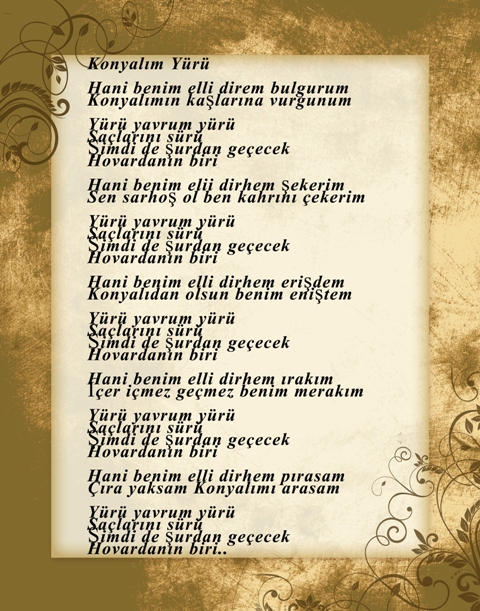 Konyalım Yürü
Hani benim elli direm bulgurum
Konyalımın kaşlarına vurgunum
Yürü yavrum yürü
Saçlarını sürü
Şimdi de şurdan geçecek
Hovardanın biri
Hani benim elii dirhem şekerim
Sen sarhoş ol ben kahrını çekerim
Yürü yavrum yürü
Saçlarını sürü
Şimdi de şurdan geçecek
Hovardanın biri
Hani benim elli dirhem erişdem
Konyalıdan olsun benim eniştem
Yürü yavrum yürü
Saçlarını sürü
Şimdi de şurdan geçecek
Hovardanın biri
Hani benim elli dirhem ırakım
İçer içmez geçmez benim merakım
Yürü yavrum yürü
Saçlarını sürü
Şimdi de şurdan geçecek
Hovardanın biri
Hani benim elli dirhem pırasam
Çıra yaksam Konyalımı arasam
Yürü yavrum yürü
Saçlarını sürü
Şimdi de şurdan geçecek
Hovardanın biri..